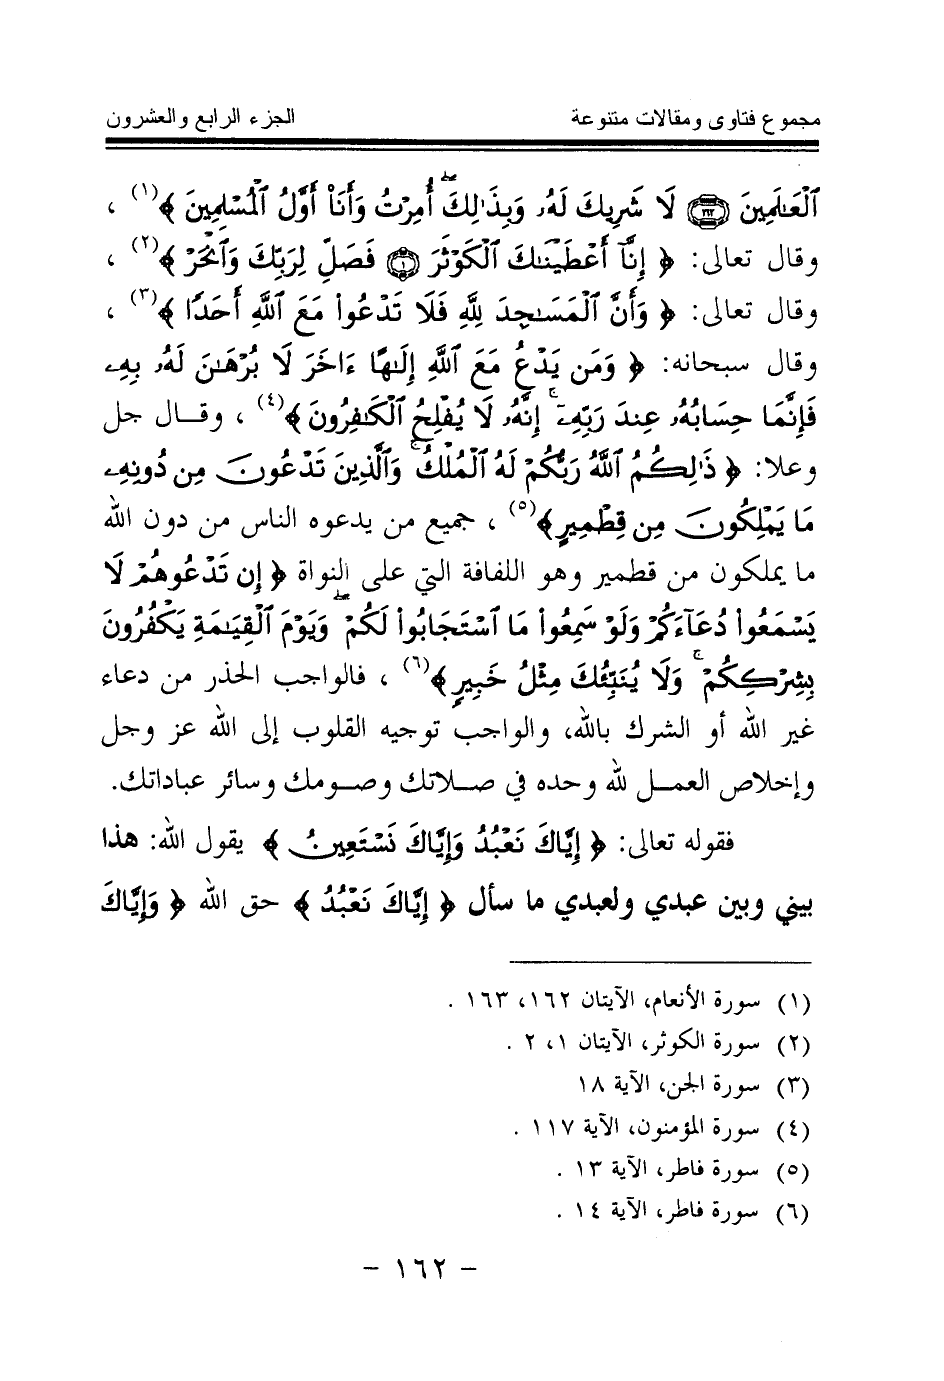 مجموع فتاوى ومقالات متنوعة الجزء الرابع والعشرون
ٱلْعَـٰلَمِينَ ﴿١٦٢﴾ لَا شَرِيكَ لَهُۥ وَبِذَٰلِكَ أُمِرْتُ وَأَنَا۠ أَوَّلُ ٱلْمُسْلِمِينَ ﴾(١) ،
وقال تعالى: ﴿ إِنَّآ أَعْطَيْنَـٰكَ ٱلْكَوْثَرَ ﴿١﴾ فَصَلِّ لِرَبِّكَ وَٱنْحَرْ ﴾(٢) ،
وقال تعالى: ﴿ وَأَنَّ ٱلْمَسَـٰجِدَ لِلَّهِ فَلَا تَدْعُوا۟ مَعَ ٱللَّهِ أَحَدًا ﴾(٣) ،
وقال سبحانه: ﴿ وَمَن يَدْعُ مَعَ ٱللَّهِ إِلَـٰهًا ءَاخَرَ لَا بُرْهَـٰنَ لَهُۥ بِهِۦ
فَإِنَّمَا حِسَابُهُۥ عِندَ رَبِّهِۦٓ ۚ إِنَّهُۥ لَا يُفْلِحُ ٱلْكَـٰفِرُونَ ﴾(٤) ، وقال جل
وعلا: ﴿ ذَٰلِكُمُ ٱللَّهُ رَبُّكُمْ لَهُ ٱلْمُلْكُ ۚ وَٱلَّذِينَ تَدْعُونَ مِن دُونِهِۦ
مَا يَمْلِكُونَ مِن قِطْمِيرٍ ﴾(٥) ، جميع من يدعوه الناس من دون الله
ما يملكون من قطمير وهو اللفافة التي على النواة ﴿ إِن تَدْعُوهُمْ لَا
يَسْمَعُوا۟ دُعَآءَكُمْ وَلَوْ سَمِعُوا۟ مَا ٱسْتَجَابُوا۟ لَكُمْ ۖ وَيَوْمَ ٱلْقِيَـٰمَةِ يَكْفُرُونَ
بِشِرْكِكُمْ ۚ وَلَا يُنَبِّئُكَ مِثْلُ خَبِيرٍ ﴾(٦) ، فالواجب الحذر من دعاء
غير الله أو الشرك بالله، والواجب توجيه القلوب إلى الله عز وجل
وإخلاص العمل لله وحده في صلاتك وصومك وسائر عباداتك.
فقوله تعالى: ﴿ إِيَّاكَ نَعْبُدُ وَإِيَّاكَ نَسْتَعِينُ ﴾ يقول الله: هذا
بيني وبين عبدي ولعبدي ما سأل ﴿ إِيَّاكَ نَعْبُدُ ﴾ حق الله ﴿ وَإِيَّاكَ
(١) سورة الأنعام، الآيتان ١٦٢، ١٦٣ .
(٢) سورة الكوثر، الآيتان ١، ٢ .
(٣) سورة الجن، الآية ١٨
(٤) سورة المؤمنون، الآية ١١٧ .
(٥) سورة فاطر، الآية ١٣ .
(٦) سورة فاطر، الآية ١٤ .
- ١٦٢ -